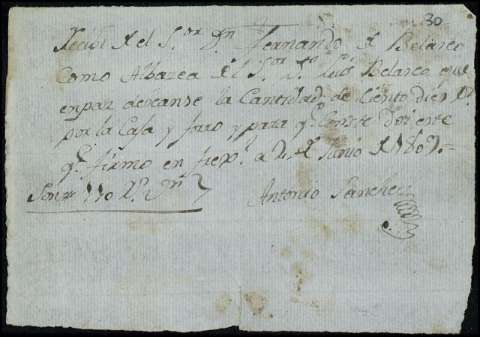 30
Recibi del S.or D.n Fernando d Belasco
Como Albasea del S.or D.n Luis Belasco, que
en paz descanse la Cantidad de Ciento diez R.s
por la Casa y para q.e Conste doi este
q.e firmo en a 2 de Junio d 1807.=
Son 110 R.s
Antonio Sanchez